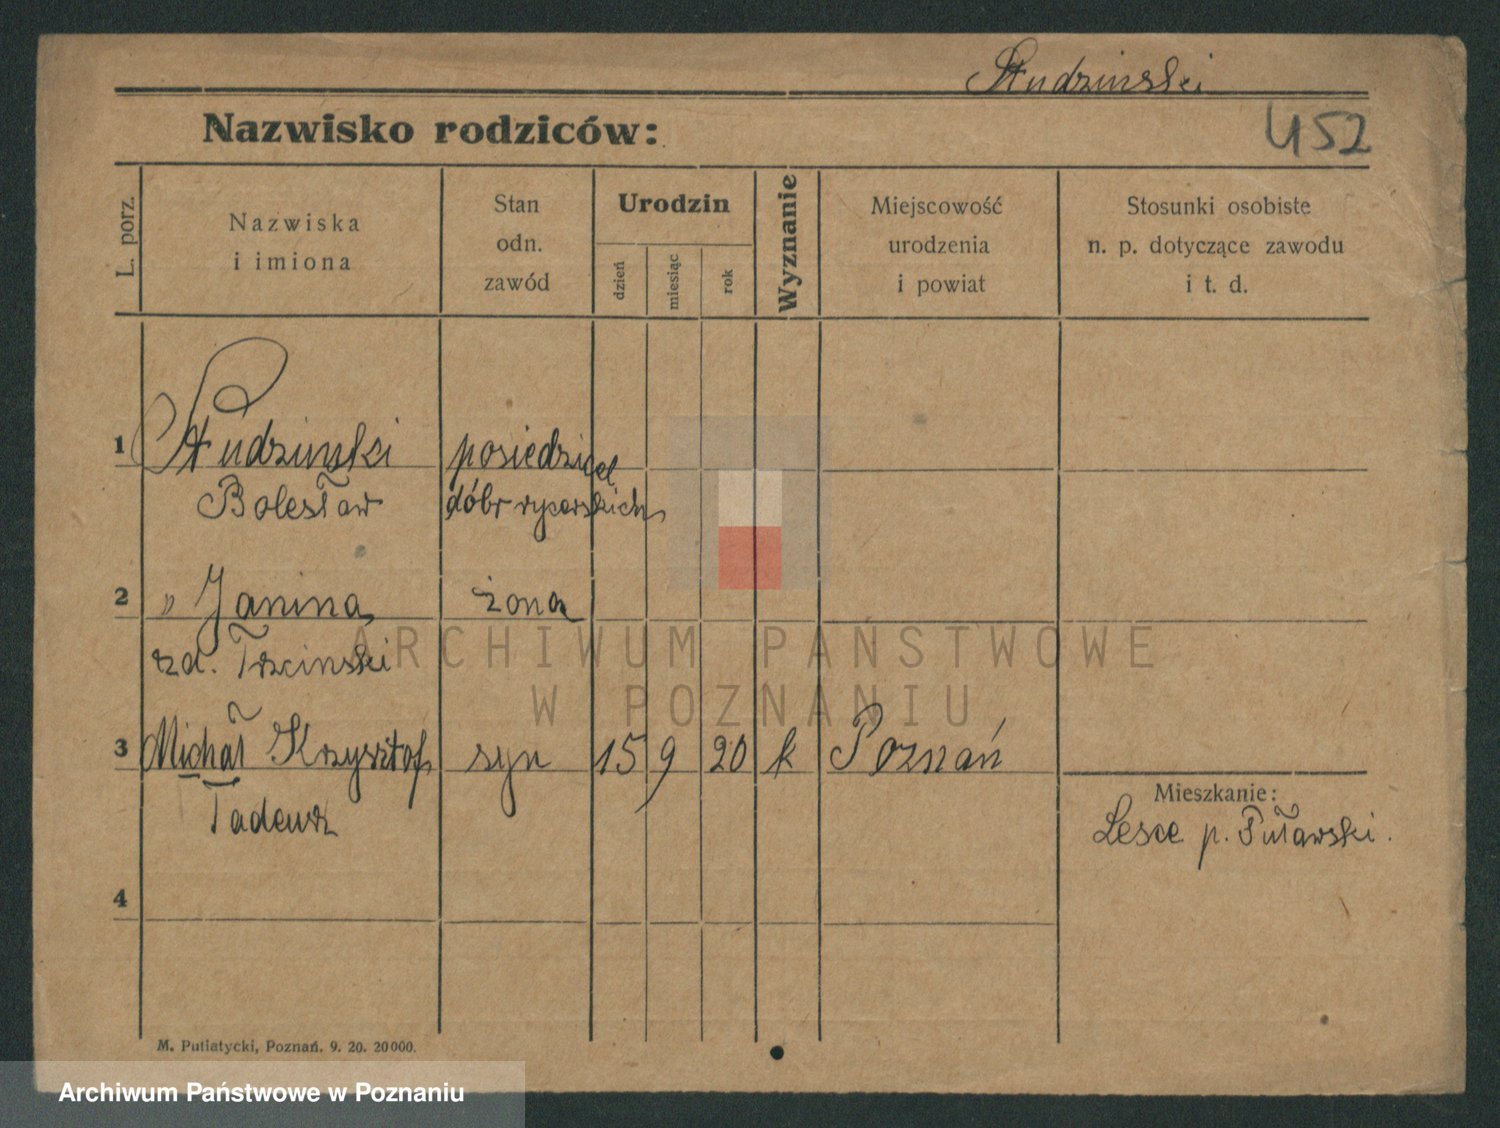 Studzinski
Nazwisko rodziców:
452
L. porz.
Nazwiska
i imiona
Stan
odn.
zawód
Urodzin
dzień
miesiąc
rok
Wyznanie
Miejscowość
urodzenia
i powiat
Stosunki osobiste
n. p. dotyczące zawodu
i t. d.
1 Studzinski posiedziciel
Bolesław dóbr rycerskich
2 " Janina żona
zd. Trzcinski
3 Michał Krzysztof syn 15 9 20 k Poznań
Tadeusz
Mieszkanie:
Lesce p. Puławski.
4
M. Putiatycki, Poznań. 9. 20. 20000.
ARCHIWUM PAŃSTWOWE
W POZNANIU
Archiwum Państwowe w Poznaniu